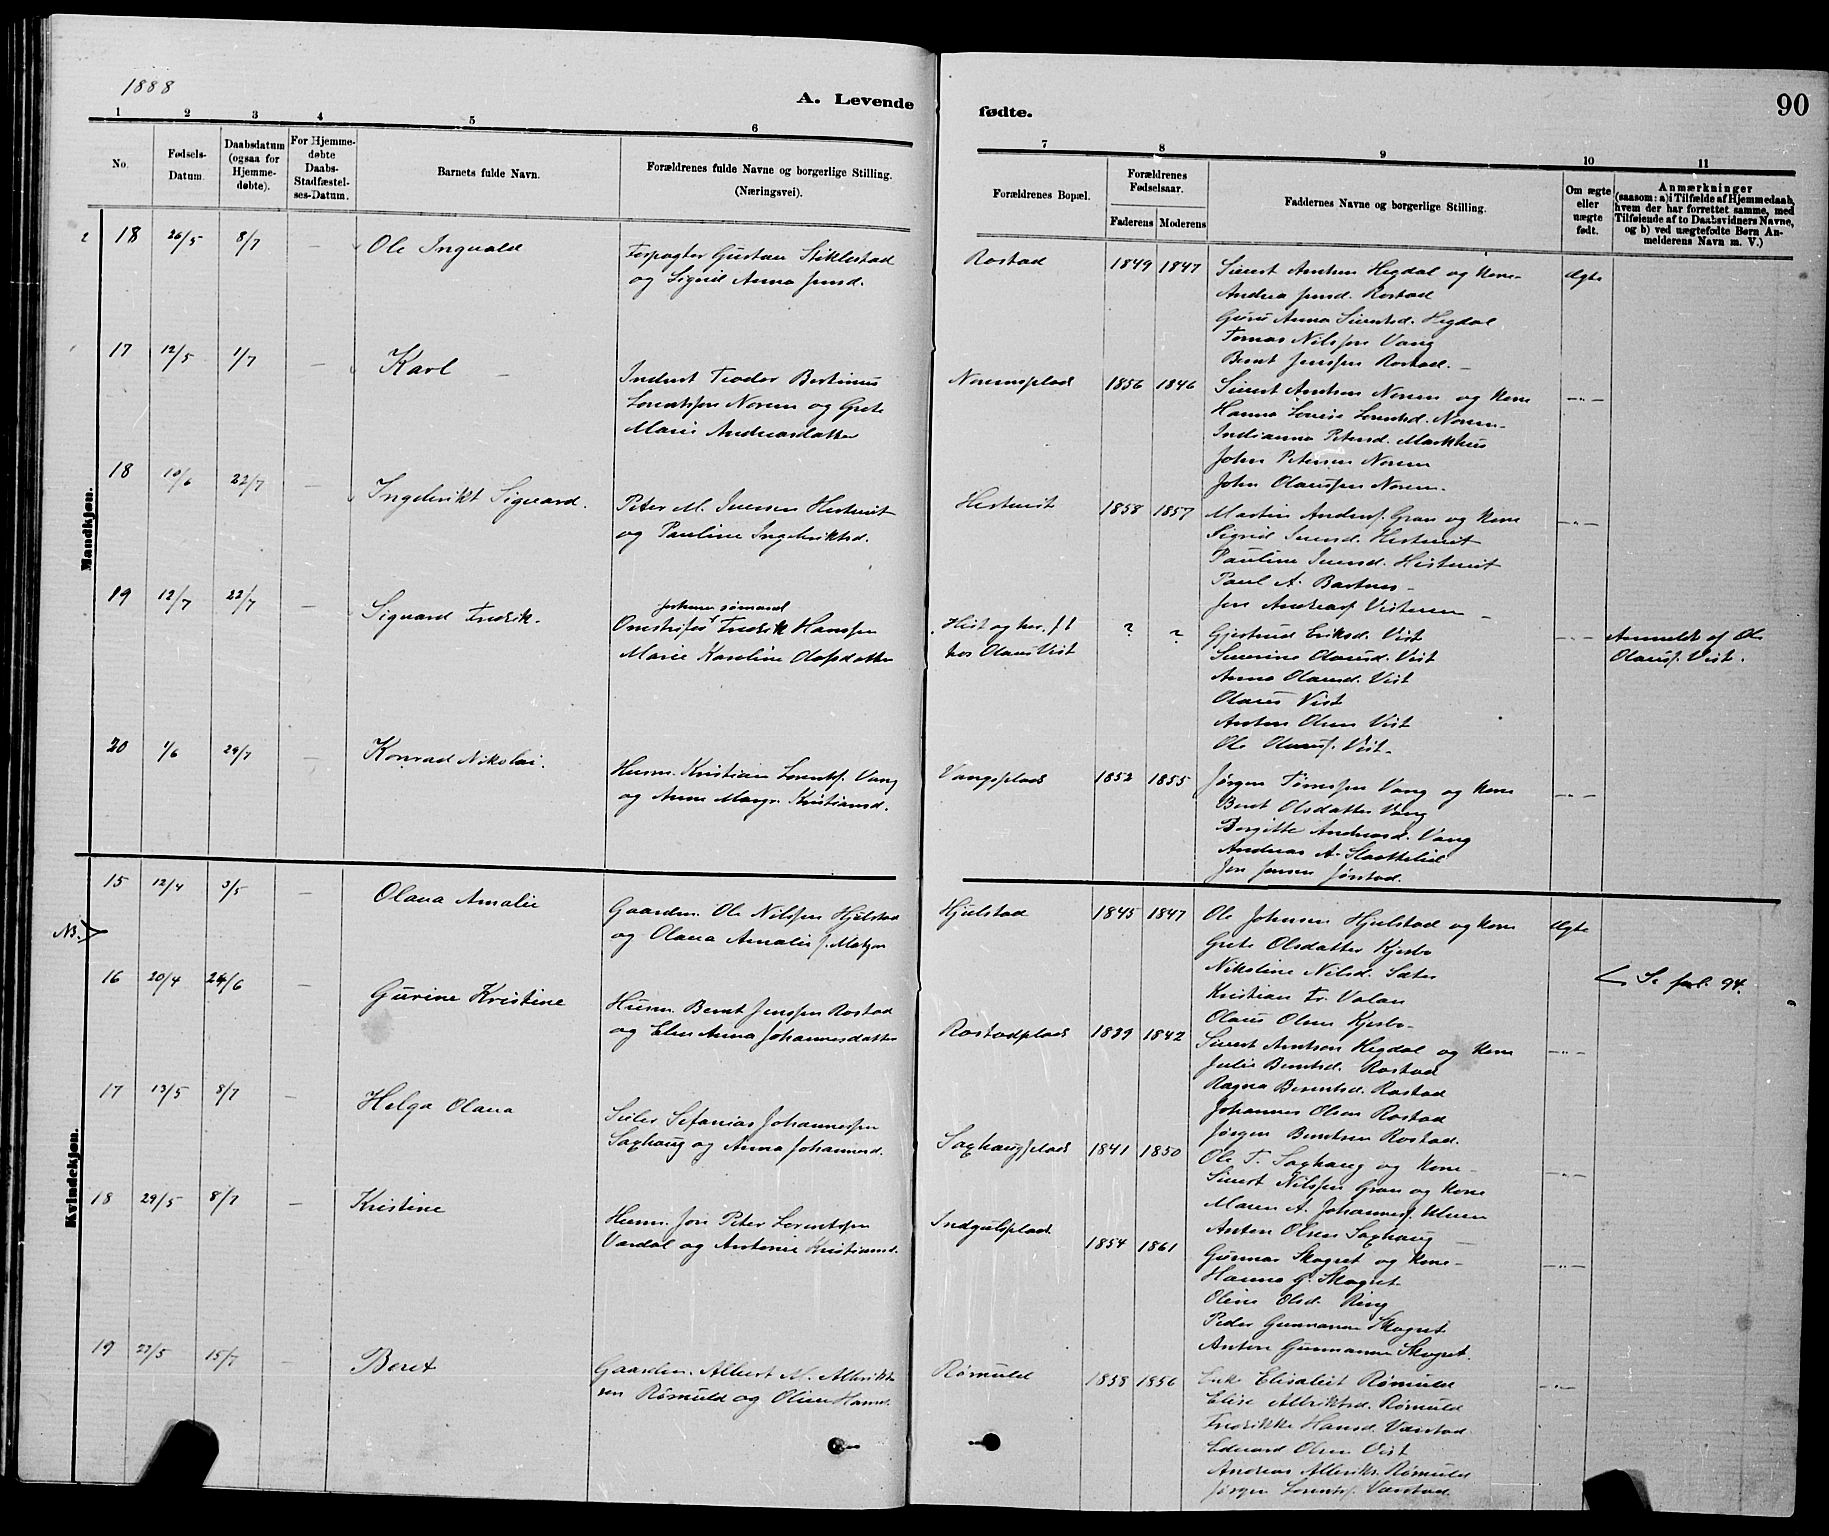 1888
A. Levende
fødte.
90
1 2 3 4 5 6
7 8 9 10 11
No.
Fødsels-Datum.
Daabsdatum (ogsaa for Hjemmedøbte).
For Hjemmedøbte Daabs-Stadfæstelses-Datum.
Barnets fulde Navn.
Forældrenes fulde Navne og borgerlige Stilling. (Næringsvei).
Forældrenes Bopæl.
Forældrenes Fødselsaar.
Faderens Moderens
Faddernes Navne og borgerlige Stilling.
Om ægte eller uægte født.
Anmærkninger (saasom: a) i Tilfælde af Hjemmedaab, hvem der har forrettet samme, med Tilføiende af to Daabsvidners Navne, og b) ved uægtefødte Børn Anmelderens Navn m. V.)
Mandkjøn.
2 18 26/5 8/7 — Ole Ingvald
Forpagter Gustav Stiklestad
og Sigrid Anna Jensd.
Rostad 1849 1847
Sivert Arntsen Hegdal og Kone
Andrea Jensd. Rostad
Guru Anna Sivertsd. Hegdal
Tomas Nilssen Vang
Bernt Jenssen Rostad.
ægte
17 12/5 1/7 — Karl
Indert Teodor Bertinus
Lorentssen Norem og Grete
Marie Andreasdatter
Noremsplads 1856 1846
Sivert Arntsen Norem og Kone
Hanna Lovise Lorentsd. Norem
Indianna Petersd. Markhus
John Petersen Norem
John Olaussen Norem.
—"—
18 10/6 22/7 — Ingebrikt Sigvard.
Peter M. Iversen Hestveit
og Pauline Ingebriktsd.
Hestveit 1858 1857
Martin Anders. Gran og Kone
Sigrid Iversd. Hestveit
Pauline Iversd. Hestveit
Paul A. Bartnes
Jon Andreas.
—"—
19 12/7 22/7 — Sigvard Fredrik.
Fredrik Hanssen
Marie Karoline Olafsdatter
hos Olaus Vist
? ?
Gjertrud Eriksd. Vist
Severine Olausd. Vist
Anna Olausd. Vist
Olaus Vist
Anton Olsen Vist
Ole Olaus. Vist.
—"—
Anmeldt af Ole
Olaus. Vist.
20 1/6 29/7 — Konrad Nikolai.
Husm. Kristian Lorents. Vang
og Anne Margr. Kristiansd.
Vangsplads 1852 1855
Jørgen Tømessen Vang og Kone
Beret Olsdatter Vang
Bergitte Andreasd. Vang
Andreas A. Slottelid
Jon Jensen Jørstad.
—"—
Kvindekjøn.
15 12/4 3/5 — Olava Amalie
Gaardm. Ole Nilssen Hjelstad
og Olava Amalie f. Matzow
Hjelstad 1845 1847
Ole Johnsen Hjelstad og Kone
Grete Olsdatter Kjesbo
Nikoline Nilsd. Sæter
Kristian Fr. Valan
Olaus Olsen Kjesbo
ægte
NB.
Se fol. 94.
16 20/4 24/6 — Gurine Kristine
Husm. Bernt Jenssen Rostad
og Elen Anna Johannesdatter
Rostadplads 1839 1842
Sivert Arntsen Hegdal og Kone
Julie Berntsd. Rostad
Ragna Berentsd. Rostad
Johannes Olsen Rostad
Jørgen Berntsen Rostad.
—"—
17 13/5 8/7 — Helga Olava
Sefanias Johannessen
Saxhaug og Anna Johannesd.
Saxhaugplads 1841 1850
Ole T. Saxhaug og Kone
Sivert Nilssen Gran og Kone
Maren A. Johannes.
Anton Olsen Saxhaug
—"—
18 29/5 8/7 — Kristine
Husm. Jon Peter Lorentsen
Vardal og Antonie Kristiansd.
Indgulsplads 1854 1861
Gunnar Skogset og Kone
Hanna G. Skogset
Oline Olsd. Ring
Peder Gunnarsen Skogset
Anton Gunnarsen Skogset.
—"—
19 27/5 15/7 — Beret
Gaardm. Albert M. Albrikt-
sen Rømuld og Oline Hansd.
Rømuld 1858 1856
Enke Elisabet Rømuld
Elise Albriktsd. Rømuld
Fredrikke Hansd. Værstad
Edvard Olsen Vist
Andreas Albrikts. Rømuld
Jørgen Lorents. Værstad.
—"—